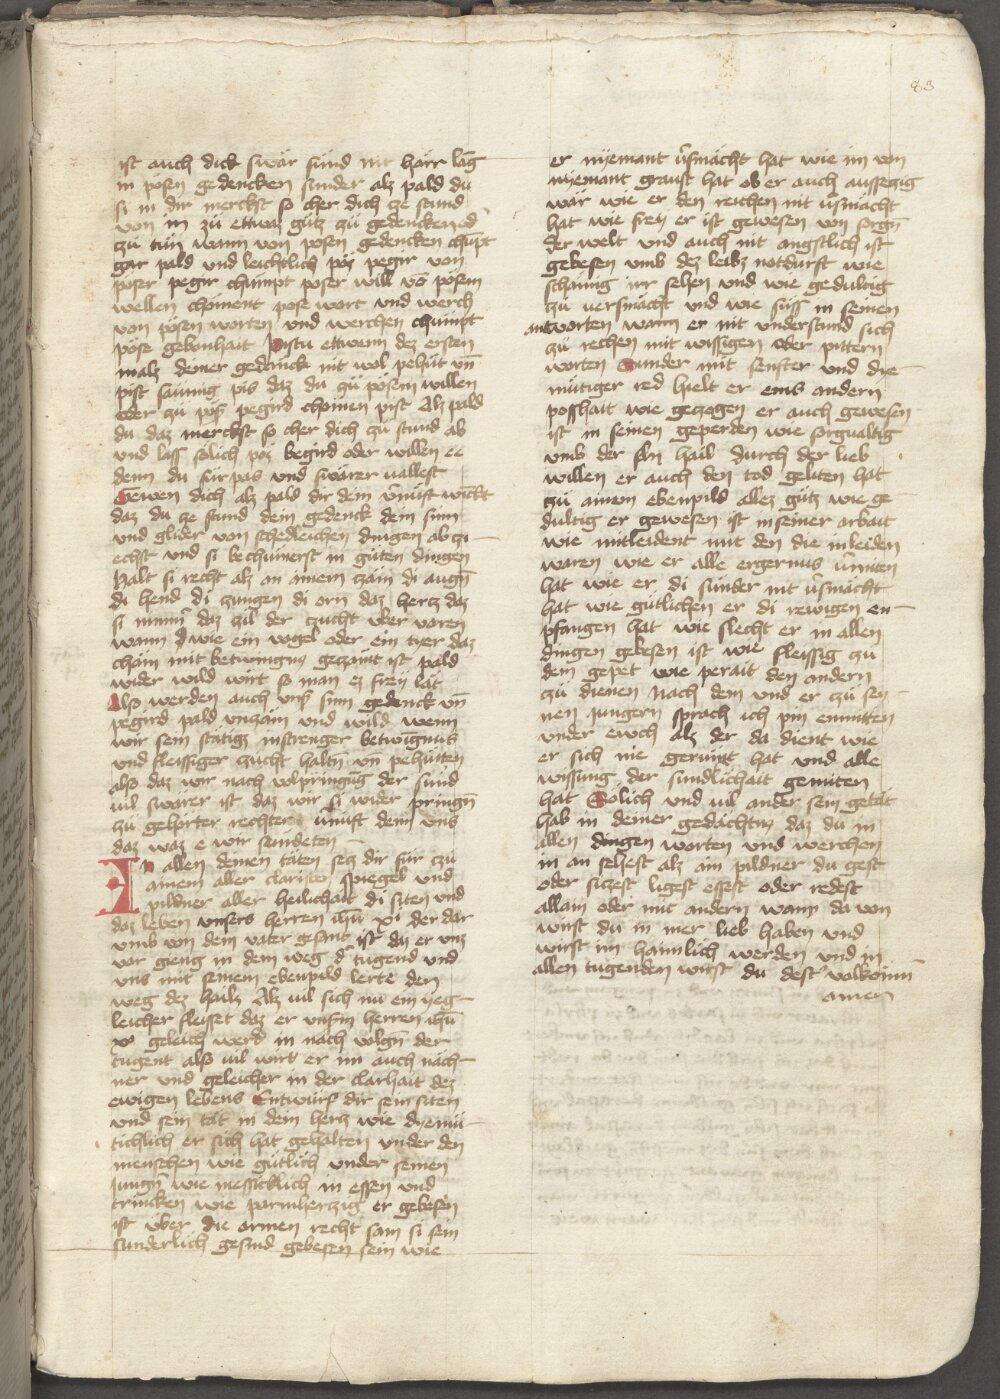 83
ist auch dick swär sünd nit harr lãg
in pösen gedencken sunder alz pald du
si in dir merckst so cher dich ze stund
von in zü ettwaz gütz zü gedencken od
zü tün wann von posen gedencken chũpt
gar pald und leichtlich pöz pegir von
poser pegir chumpt poser will võ pösem
wellen choment pose wort und werch
von pösen worten und werchen chumpt
pöse gebonhait Pistu ettwenn dez ersten
malz deiner gedenck nit wol pehüt vñ
pist saumig pis daz du zü posem willen
oder zu pös pegird chomen pist Alz pald
du daz merckst so cher dich zü stund ab
und lass solich pöz begird oder willen ee
denn du fürpas und swärer vallest
Gewen dich alz pald dir dein v̄nuft wickt
daz du ze stund dein gedenck dein sinn
und glider von schedleichen dingen abzi
echst und si bechumerst in güten dingen
Halt si recht alz an ainem zäm di augñ
di hend di zungen di orn daz hertz daz
si nimm̄ daz zil der zucht vber varen
wann wie ein vogel oder ein tyer daz
chäm mit betwingnuz gezämt ist pald
wider wild wirt so man ez frey lät
Also werden auch unß sinn gedenck vñ
pegird pald unzäm und wild wenn
wir sein stätigz in strenger betwignus
und fleissiger zucht haltñ vñ pehütten
also daz wir nach volpringũg der sünd
vil swärer ist daz wir si wider pringñ
zü gehörter rechter v̄nuft denn uns
daz waz e wir sündeten
IN allen deinen täten setz dir für zü
ainem aller claristen spiegel und
pildner aller heilichait di siten und
daz leben unsers herren ihũ xp̄i der dar
umb von dem vater gesant ist daz er uns
vor gieng in dem weg d̄ tugend und
uns mit seinem ebenpild lerte den
weg dez hailz Alz vil sich nu ein yeg
leicher fleisset daz er unsm̄ herren ihũ
xp̄o geleich werd in nach volgũg der
tugent also vil wirt er im auch näch
ner und geleicher in der clarhait dez
ewigen lebens Entwürf dir sein siten
und sein tät in dein hertz wie dyemü
tichlich er sich hat gehalten under den
menschen wie gütlich under seinen
jungñ wie messicklich in essen und
trincken wie parmhertzig er gebesen
ist über die armen recht sam si sein
sunderlich gesind gebesen sein wie
er nyemant v̄smächt hat wie im von
nyemant graust hat ob er auch aussetzig
war wie er den reichen nit v̄smächt
hat wie frey er ist gewesen von sorgñ
der welt und auch nit angstlich ist
gebesen umb dez leibz notdurft wie
schamig irr sehen und wie gedultig
zü versmächt und wie süss in seinen
antworten wann er nit understund sich
zü rechen mit wissigen oder pittern
worten Sunder mit senfter und dye
mütiger red hielt er eins andern
poshait wie gezogen er auch gewesen
ist in seinen geperden wie sorgvaltig
umb der sln̄ hail durch der lieb
willen er auch den tod geliten hat
zü ainem ebenpild allez gütz wie ge
dultig er gewesen ist in seiner arbait
wie mitleident mit den die in leiden
waren wie er alle ergernus v̄miten
hat wie er di sünder nit v̄smächt
hat wie gütlichen er di rewigen en
pfangen hat wie slecht er in allen
dingen gebesen ist wie fleissig zü
dem gepet wie perait den andern
zü dienen Nach dem und er zü sey
nen jungern sprach ich pin enmitten
under ewch alz der da dient wie
er sich nie gerümt hat und alle
wissung der sündlichait gemiten
hat Sölich und vil ander sein getät
hab in deiner gedächtnuz daz du in
allen dingen worten und werchen
in an sehest alz ain pildner du gest
oder sitzest ligest essest oder redest
allain oder mit andern wann da von
wirst du in mer lieb haben und
wirst im hamlich werden und in
allen tugenden wirst du dest volkomm̄
amen